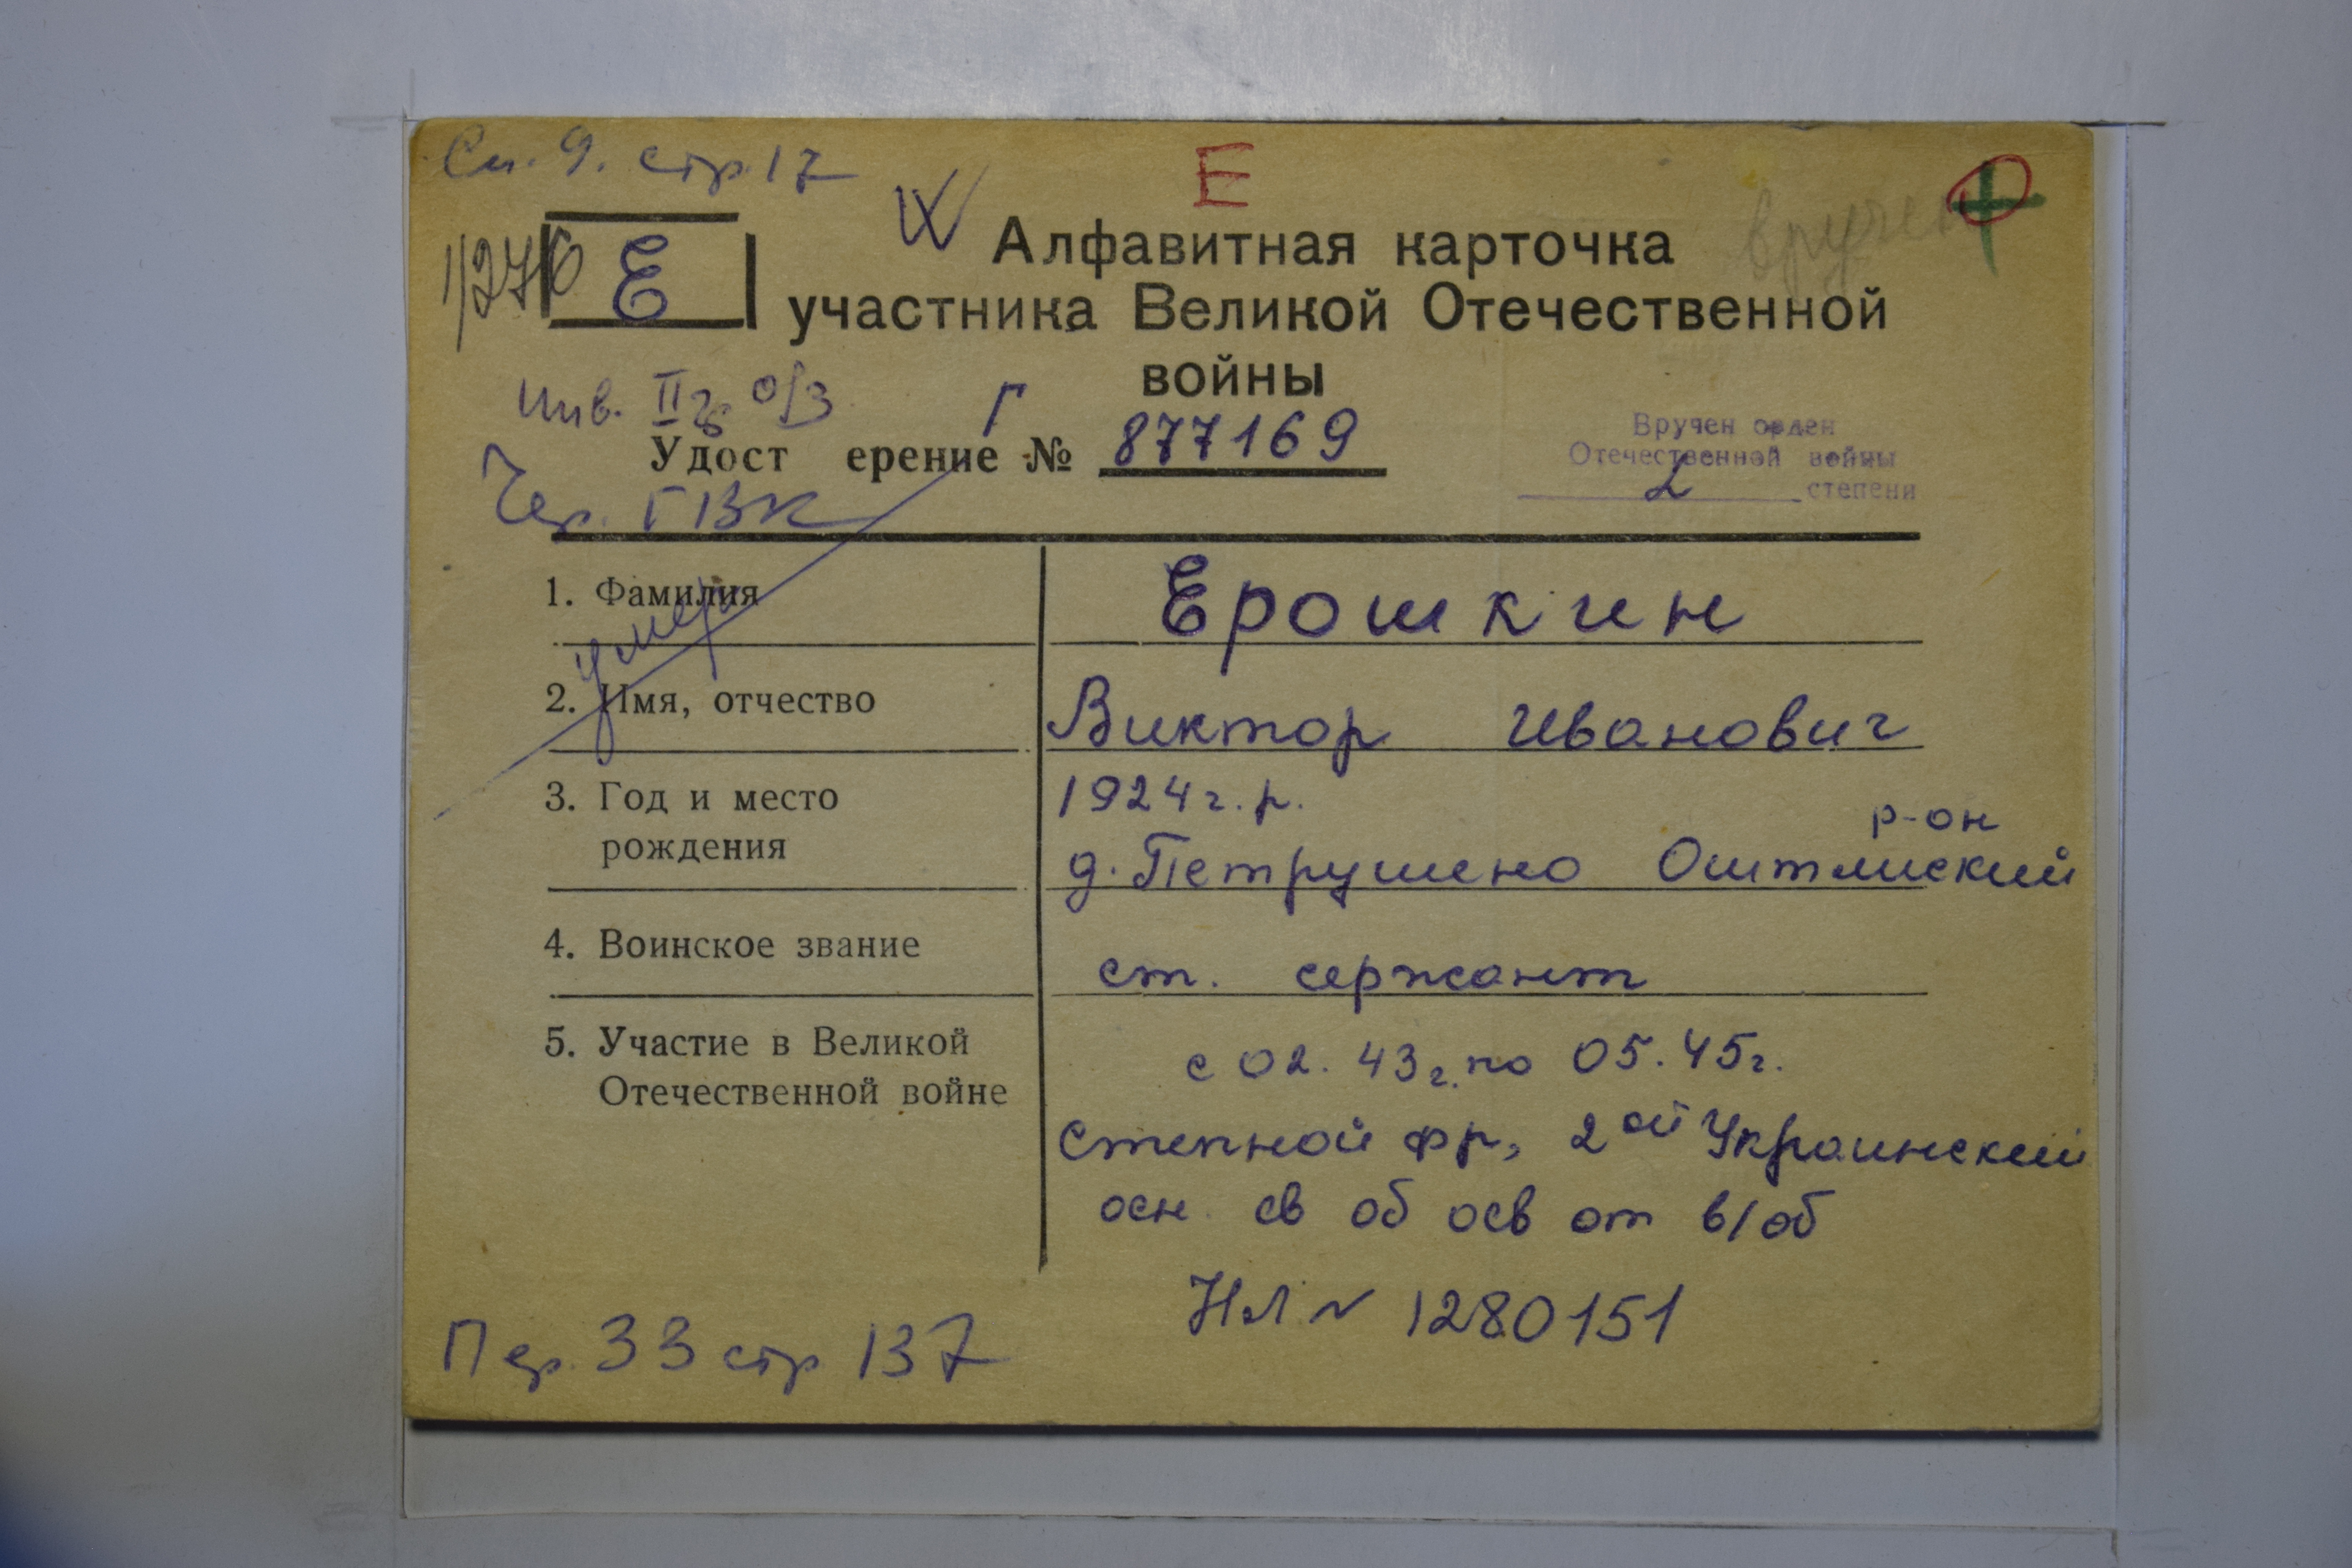 Сп. 9. стр. 17
Е
вручен
1/276
Е
Алфавитная карточка
участника Великой Отечественной
войны
Инв. II гр. о/з
Г
Удост ерение № 877169
Вручен орден
Отечественной войны
2 степени
Чер. ГВК
умер
1. Фамилия Ерошкин
2. Имя, отчество Виктор Иванович
3. Год и место 1924 г.р.
р-он
рождения д. Петрушено Оштлиский
4. Воинское звание ст. сержант
5. Участие в Великой с 02. 43 г. по 05. 45 г.
Отечественной войне
Степной фр, 2ой Украинский
осн св об осв от в/об
НЛ № 1280151
Пер. 33 стр 137